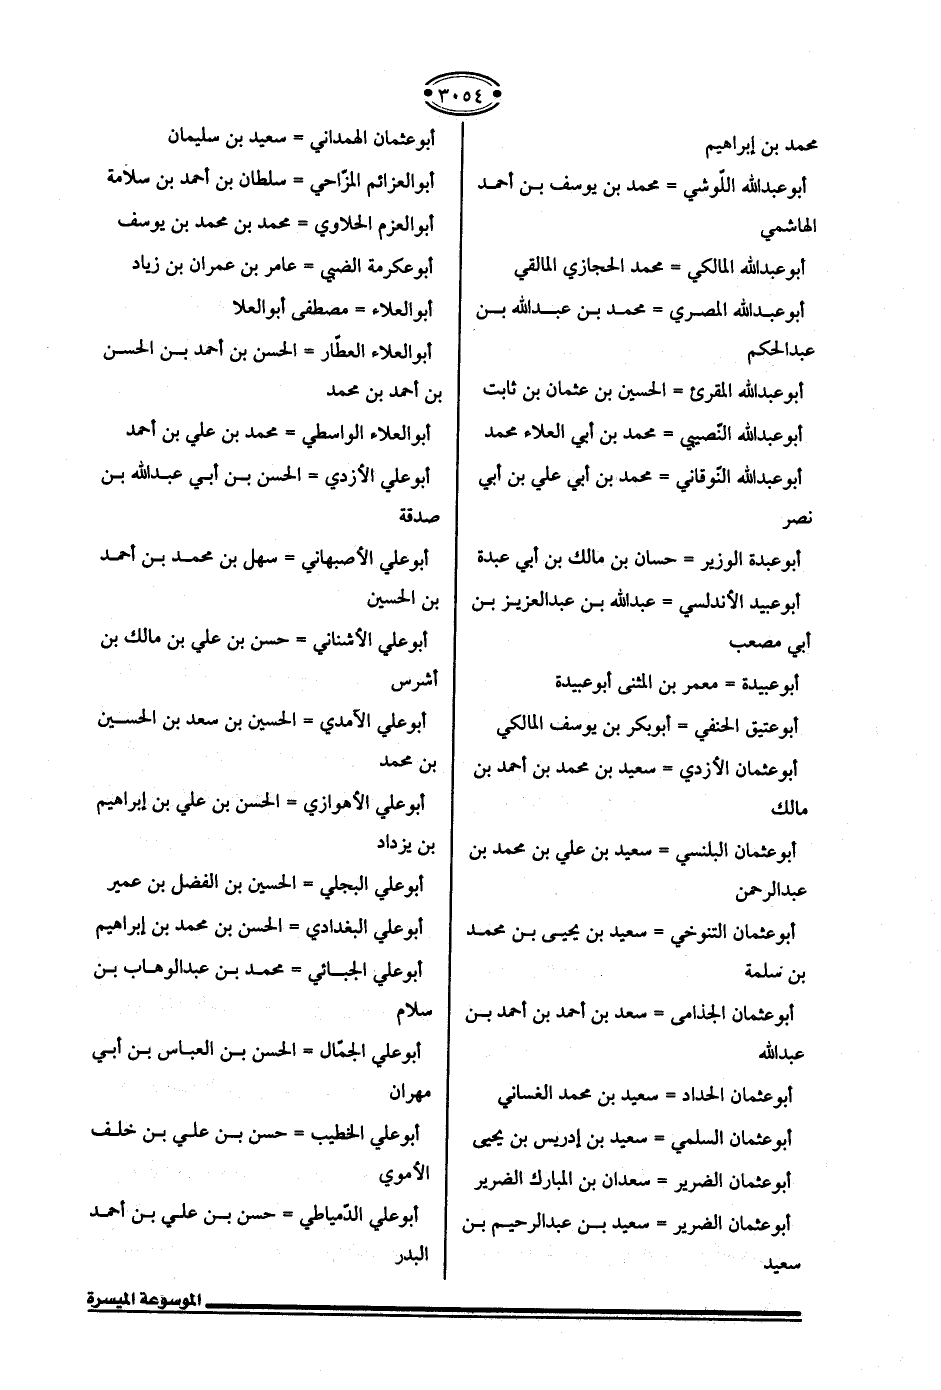 ٣٠٥٤
محمد بن إبراهيم
أبوعبدالله اللّوشي = محمد بن يوسف بـن أحمد
الهاشمي
أبوعبدالله المالكي = محمد الحجازي المالقي
أبوعبـدالله المصـري = محمـد بـن عبـدالله بـن
عبدالحكم
أبوعبدالله المقرئ = الحسين بن عثمان بن ثابت
أبوعبدالله النّصيبي = محمد بن أبي العلاء محمد
أبوعبدالله النّوقاني = محمد بن أبي علي بن أبي
نصر
أبوعبدة الوزير = حسان بن مالك بن أبي عبدة
أبوعبيد الأندلسي = عبدالله بـن عبدالعزيـز بـن
أبي مصعب
أبوعبيدة = معمر بن المثنى أبوعبيدة
أبوعتيق الحنفي = أبوبكر بن يوسف المالكي
أبوعثمان الأزدي = سعيد بن محمد بن أحمد بن
مالك
أبوعثمان البلنسي = سعيد بن علي بن محمد بن
عبدالرحمن
أبوعثمان التنوخي = سعيد بن يحيـى بـن محمـد
بن سلمة
أبوعثمان الجذامى = سعد بن أحمد بن أحمد بـن
عبدالله
أبوعثمان الحداد = سعيد بن محمد الغساني
أبوعثمان السلمي = سعيد بن إدريس بن يحيى
أبوعثمان الضرير = سعدان بن المبارك الضرير
أبوعثمان الضرير = سعيد بـن عبدالرحيـم بـن
سعيد
أبوعثمان الهمداني = سعيد بن سليمان
أبوالعزائم المزّاحي = سلطان بن أحمد بن سلامة
أبوالعزم الحلاوي = محمد بن محمد بن يوسف
أبوعكرمة الضبي = عامر بن عمران بن زياد
أبوالعلاء = مصطفى أبوالعلا
أبوالعلاء العطّار = الحسن بن أحمد بـن الحسن
بن أحمد بن محمد
أبوالعلاء الواسطي = محمد بن علي بن أحمد
أبوعلي الأزدي = الحسن بـن أبـي عبـدالله بـن
صدقة
أبوعلي الأصبهاني = سهل بن محمـد بـن أحمـد
بن الحسين
أبوعلي الأشناني = حسن بن علي بن مالك بن
أشرس
أبوعلي الآمدي = الحسين بن سعد بن الحسـين
بن محمد
أبوعلي الأهوازي = الحسن بن علي بن إبراهيم
بن يزداد
أبوعلي البجلي = الحسين بن الفضل بن عمير
أبوعلي البغدادي = الحسن بن محمد بن إبراهيم
أبوعلي الجبـائي = محمـد بـن عبدالوهـاب بـن
سلام
أبوعلي الجمّال = الحسن بـن العبـاس بـن أبـي
مهران
أبوعلي الخطيب = حسن بـن علـي بـن خلـف
الأموي
أبوعلي الدّمياطي = حسن بـن علـي بـن أحمـد
البدر
الموسوعة الميسرة